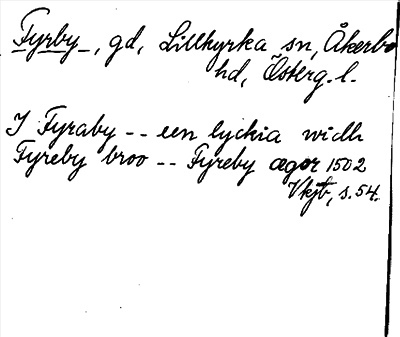 Fyrby, gd, Lillkyrka sn, Åkerbo
hd, Österg. l.
I Fyraby -- een lyckia widh
Fyreby broo -- Fyreby æger 1502
Vkjb, s. 54.